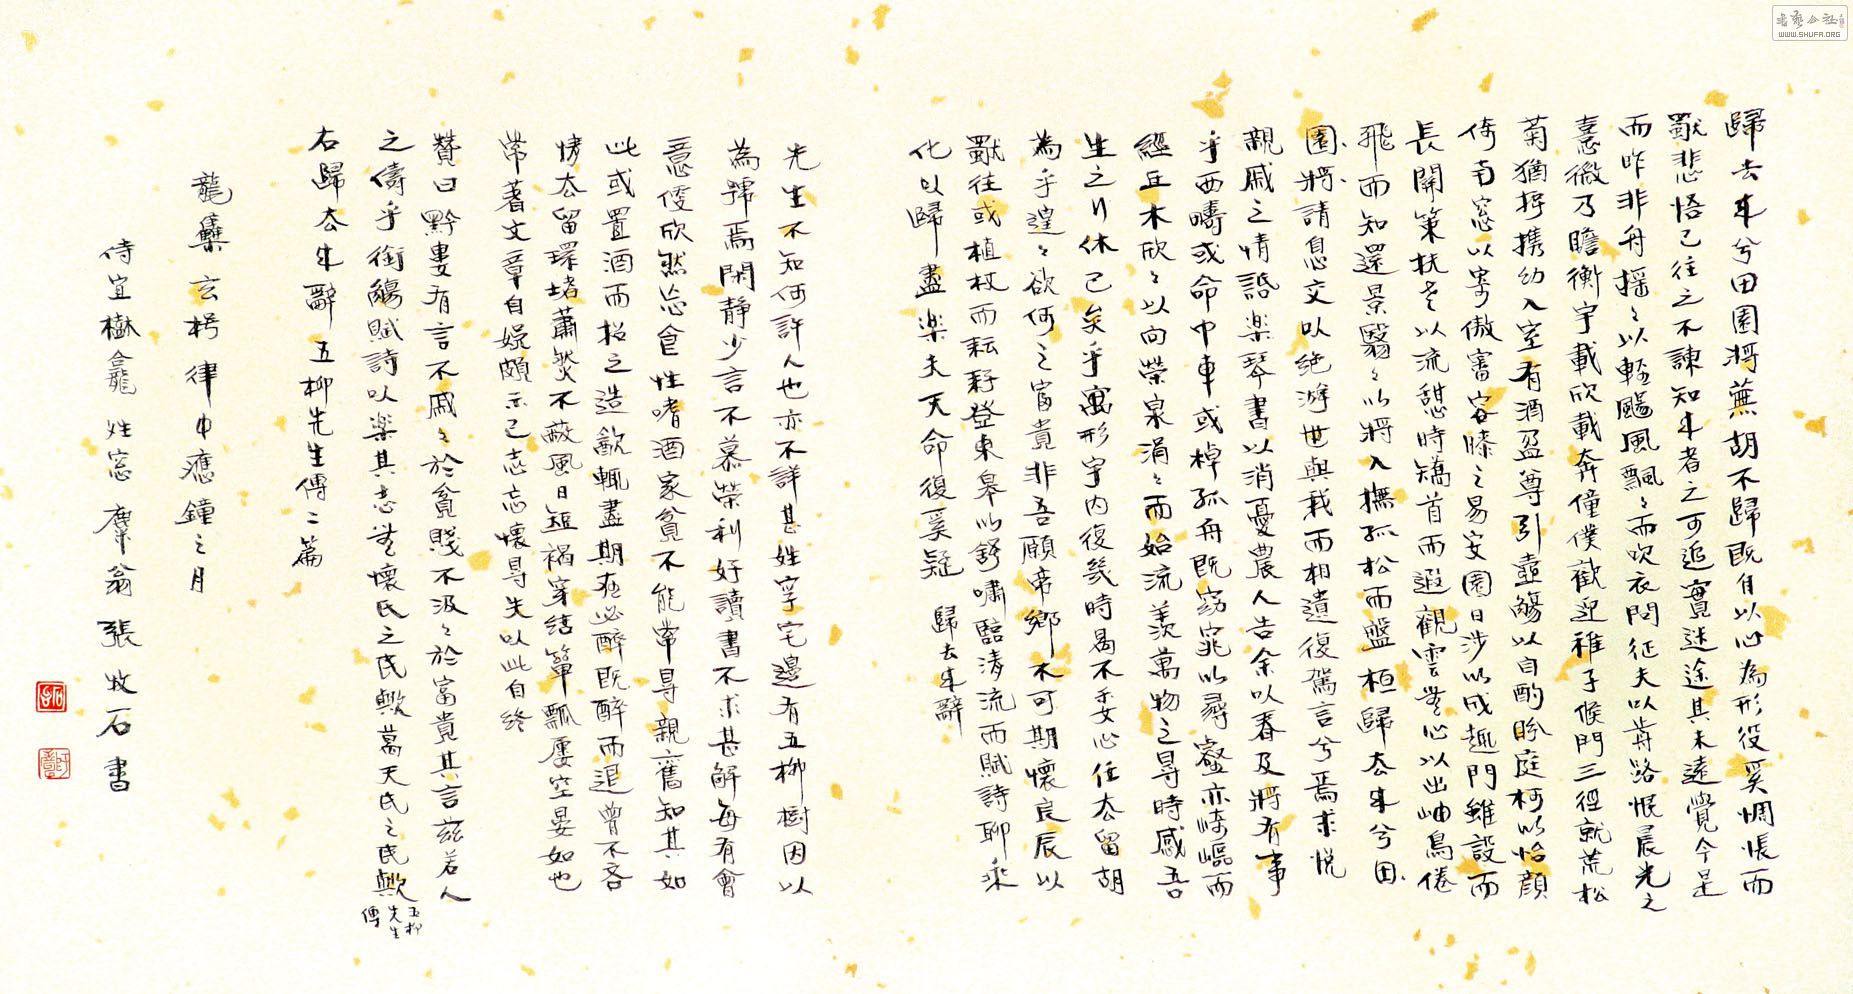 歸去来兮田園將蕪胡不歸既自以心為形役奚惆悵而
獨悲悟已往之不諫知来者之可追實迷途其未遠覺今是
而昨非舟揺〻以輕颺風飄〻而吹衣問征夫以前路恨晨光之
熹微乃瞻衡宇載欣載奔僮僕歡迎稚子候門三徑就荒松
菊猶存携幼入室有酒盈尊引壺觴以自酌眄庭柯以怡顔
倚南窓以寄傲審容膝之易安園日涉以成趣門雖設而
長關策扶老以流憩時矯首而遐觀雲無心以出岫鳥倦
飛而知還景翳〻以將入撫孤松而盤桓歸去来兮田
園將請息交以絶游世與我而相遺復駕言兮焉求悦
親戚之情話楽琴書以消憂農人告余以春及將有事
乎西疇或命巾車或棹孤舟既窈窕以尋壑亦崎嶇而
經丘木欣〻以向榮泉涓〻而始流羨萬物之得時感吾
生之行休已矣乎寓形宇内復幾時曷不委心任去留胡
為乎遑〻欲何之富貴非吾願帝鄉不可期懷良辰以
獨往或植杖而耘耔登東皋以舒嘯臨清流而賦詩聊乘
化以歸盡楽夫天命復奚疑 歸去来辭
先生不知何許人也亦不詳其姓字宅邊有五柳樹因以
為號焉閑静少言不慕榮利好讀書不求甚解每有會
意便欣然忘食性嗜酒家貧不能常得親舊知其如
此或置酒而招之造飲輒盡期在必醉既醉而退曾不吝
情去留環堵蕭然不蔽風日短褐穿結簞瓢屢空晏如也
常著文章自娱頗示己志忘懷得失以此自終
贊曰黔婁有言不戚〻於貧賤不汲〻於富貴其言茲若人
之儔乎銜觴賦詩以楽其志無懷氏之民歟葛天氏之民歟五柳先生傳
右歸去来辭 五柳先生傳二篇
龍雧玄枵律中應鐘之月
侍宜樹龕 姓窓 麋翁 張牧石書
WWW.SHUFA.ORG